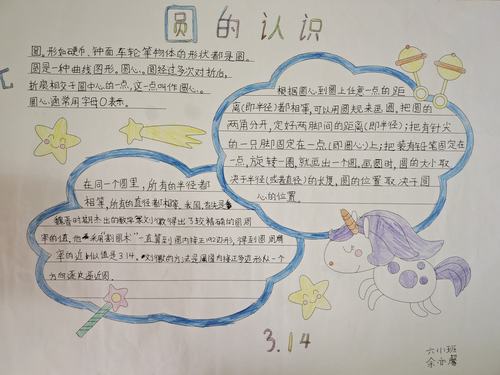 圆的认识
圆。形如硬币、钟面车轮等物体的形状都是圆。
圆是一种曲线图形。圆心。圆经过多次对折后,
折痕相交于圆中心的一点,这一点叫作圆心。
圆心通常用字母O表示。
根据圆心到圆上任意一点的距
离(即半径)都相等,可以用圆规来画圆,把圆的
两角分开,定好两脚间的距离(即半径);把有针尖
的一只脚固定在一点(即圆心)上;把装有铅笔固定在
一点,旋转一圈,就画出一个圆,画圆时,圆的大小取
决于半径(或者直径)的长度,圆的位置取决于圆
心的位置。
在同一个圆里,所有的半径都
相等,所有的直径都相等。我国
魏晋时期杰出的数学家刘徽得出了较精确的圆周
率的值。他采用"割圆术"一直算到圆内接正192边形,得到圆周
率的近似值是3.14。刘徽的方法是用圆内接正多边形从一个
方向逐次逼近圆。
3.14
π
六(1)班